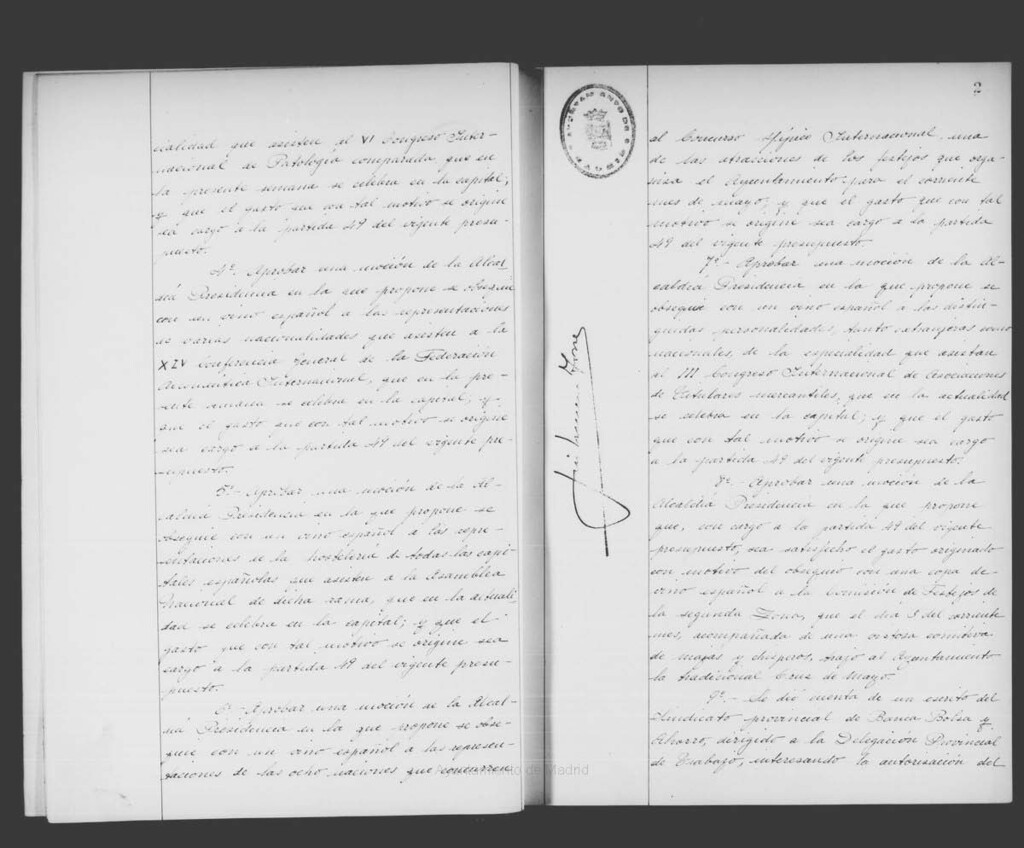 cialidad que asisten al VI Congreso Inter-
nacional de Patología comparada que en
la presente semana se celebra en la capital;
y que el gasto que con tal motivo se origine
sea cargo a la partida 49 del vigente presu-
puesto.
4º. Aprobar una moción de la Alcal-
día Presidencia en la que propone se obsequie
con un vino español a las representaciones
de varias nacionalidades que asisten a la
XIV Conferencia General de la Federación
Aeronáutica Internacional, que en la pre-
sente semana se celebra en la capital; y
que el gasto que con tal motivo se origine
sea cargo a la partida 49 del vigente pre-
supuesto.
5º.- Aprobar una moción de la Al-
caldía Presidencia en la que propone se
obsequie con un vino español a las repre-
sentaciones de la hostelería de todas las capi-
tales españolas que asisten a la Asamblea
Nacional de dicha rama, que en la actuali-
dad se celebra en la capital; y que el
gasto que con tal motivo se origine sea
cargo a la partida 49 del vigente presu-
puesto.
6º.- Aprobar una moción de la Alcal-
día Presidencia en la que propone se obse-
quie con un vino español a las represen-
taciones de las ocho naciones que concurren
2
AYUNTAMIENTO DE MADRID
al Concurso Hípico Internacional, una
de las atracciones de los festejos que orga-
niza el Ayuntamiento para el corriente
mes de mayo; y que el gasto que con tal
motivo se origine sea cargo a la partida
49 del vigente presupuesto.
7º.- Aprobar una moción de la Al-
caldía Presidencia en la que propone se
obsequie con un vino español a las distin-
guidas personalidades, tanto extranjeras como
nacionales, de la especialidad que asistan
al III Congreso Internacional de Asociaciones
de Titulares mercantiles, que en la actualidad
se celebra en la capital; y que el gasto
que con tal motivo se origine sea cargo
a la partida 49 del vigente presupuesto.
8º.- Aprobar una moción de la
Alcaldía Presidencia en la que propone
que, con cargo a la partida 49 del vigente
presupuesto, sea satisfecho el gasto originado
con motivo del obsequio con una copa de
vino español a la Comisión de Festejos de
la segunda Zona, que el día 3 del corriente
mes, acompañada de una vistosa comitiva
de majas y chisperos, trajo al Ayuntamiento
la tradicional Cruz de Mayo.
9º.- Se dió cuenta de un escrito del
Sindicato provincial de Banca Bolsa y
Ahorro, dirigido a la Delegación Provincial
de Trabajo, interesando la autorización del
Ayuntamiento de Madrid